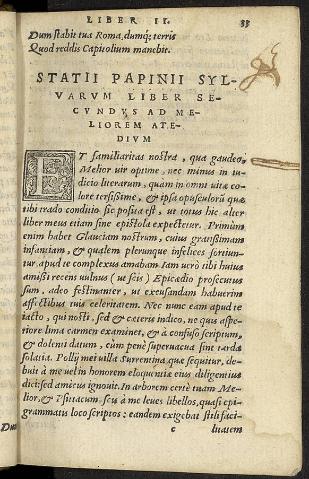 LIBER II. 33
Dum stabit tua Roma, dumq; terris
Quod reddis Capitolium manebit.
STATII PAPINII SYL-
VARVM LIBER SE-
CVNDVS AD ME-
LIOREM ATE-
DIVM
ET familiaritas nostra, qua gaudeo,
Melior uir optime, nec minus in iu-
dicio literarum, quam in omni uitæ co-
lore tersissime, & ipsa opusculorū quæ
tibi trado conditio sic posita est, ut totus hic alter
liber meus etiam sine epistola expectetur. Primum
enim habet Glauciam nostrum, cuius gratissimam
infantiam, & qualem plerunque infelices sortiun-
tur, apud te complexus amabam. Iam uerò tibi huius
amissi recens uulnus (ut scis) Epicædio prosecutus
sum, adeo festinanter, ut excusandam habuerim
affectibus tuis celeritatem. Nec nunc eam apud te
iacto, qui nosti, sed & cæteris indico, ne quis aspe-
riore lima carmen examinet, & à confuso scriptum,
& dolenti datum, cùm penè superuacua sint tarda
solatia. Pollij mei uilla Surrentina quæ sequitur, de-
buit à me uel in honorem eloquentiæ eius diligentius
dici: sed amicus ignouit. In arborem certè tuam Me-
lior, & Psittacum scis à me leues libellos, quasi epi-
grammatis loco scriptos: eandem exigebat stili faci-
c litatem